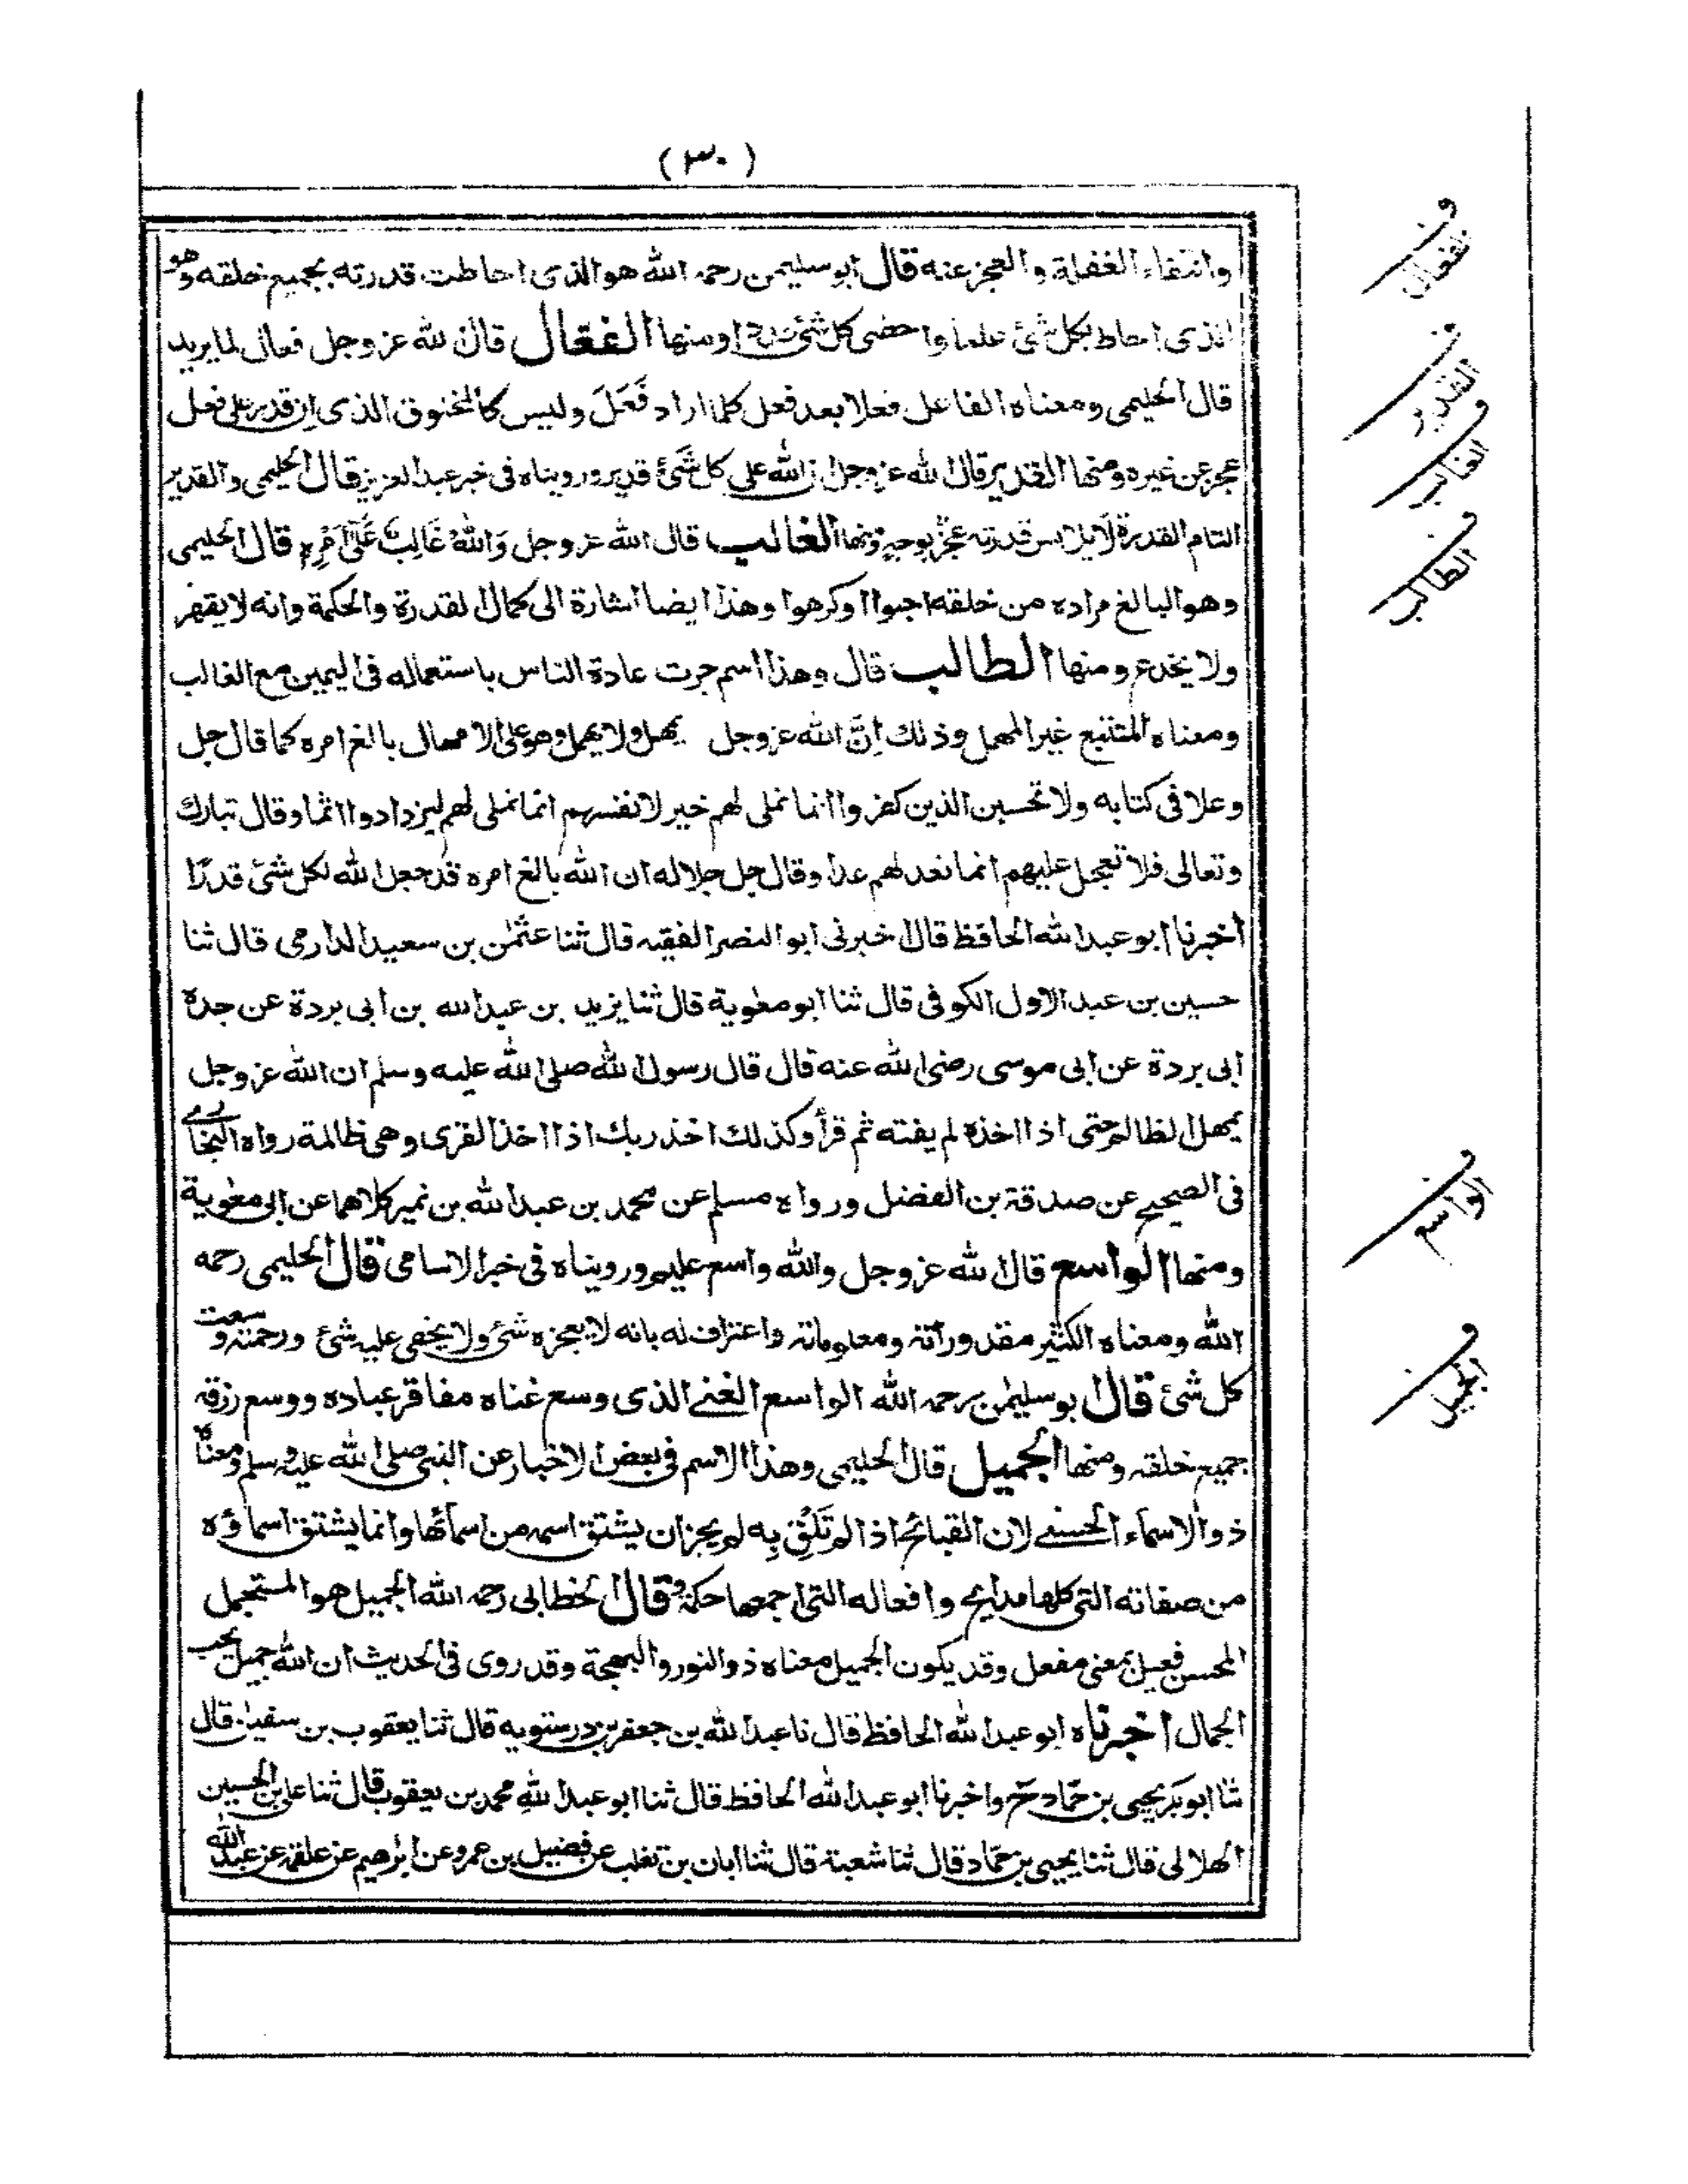 (٣٠)
وانتفاء الغفلة والعجز عنه قال ابو سليمن رحمه الله هو الذى احاطت قدرته بجميع خلقه وهو
الذى احاط بكل شئ علما واحصى كل شئ عددا ومنها الفعّال قال الله عز وجل فعال لما يريد
قال الحليمى ومعناه الفاعل فعلا بعد فعل كلما اراد فَعَلَ وليس كالمخلوق الذى ان قدر على فعل
عجز عن غيره ومنها القدير قال الله عز وجل ان الله على كل شَئ قدير ورويناه فى خبر عبد العزيز قال الحليمى والقدير
التام القدرة لا يلابس قدرته عجز بوجه ومنها الغالب قال الله عز وجل وَاللهُ غَالِبٌ عَلَى اَمْرِهِ قال الحليمى
وهو البالغ مراده من خلقه احبوا اوكرهوا وهذا ايضا اشارة الى كمال القدرة والحكمة وانه لا يقهر
ولا يخدع ومنها الطالب قال وهذا اسم جرت عادة الناس باستعماله فى اليمين مع الغالب
ومعناه المتتبع غير المهمل وذلك اِنَّ الله عز وجل يمهل ولا يهمل وهو على الامهال بالغ امره كما قال جل
وعلا فى كتابه ولا تحسبن الذين كفروا انما نملى لهم خير لانفسهم انما نملى لهم ليزدادوا اثما وقال تبارك
وتعالى فلا تعجل عليهم انما نعد لهم عدا وقال جل جلاله ان الله بالغ امره قد جعل الله لكل شئ قدرًا
اخبرنا ابو عبد الله الحافظ قال اخبرنى ابو النضر الفقيه قال ثنا عثمٰن بن سعيد الدارمى قال ثنا
حسين بن عبد الاول الكوفى قال ثنا ابو معٰوية قال ثنا يزيد بن عبد الله بن ابى بردة عن جده
ابى بردة عن ابى موسى رضى الله عنه قال قال رسول الله صلى الله عليه وسلم ان الله عز وجل
يمهل الظالم حتى اذا اخذه لم يفته ثم قرأ وكذلك اخذ ربك اذا اخذ القرى وهى ظالمة رواه البخارى
فى الصحيح عن صدقة بن الفضل ورواه مسلم عن محمد بن عبد الله بن نمير كلاهما عن ابى معٰوية
ومنها الواسع قال الله عز وجل والله واسع عليم ورويناه فى خبر الاسامى قال الحليمى رحمه
الله ومعناه الكثير مقدوراته ومعلوماته واعتراف له بانه لا يعجزه شئ ولا يخفى عليه شئ ورحمته وسعت
كل شئ قال ابو سليمٰن رحمه الله الواسع الغنى الذى وسع غناه مفاقر عباده ووسع رزقه
جميع خلقه ومنها الجميل قال الحليمى وهذا الاسم فى بعض الاخبار عن النبى صلى الله عليه وسلم ومعناه
ذو الاسماء الحسنى لان القبائح اذا لم تَلِقْ بِه لم يجز ان يشتق اسمه من اسمآئها وانما يشتق اسماؤه
من صفاته التى كلها مدايح وافعاله التى اجمعها حكمة وقال الخطابى رحمه الله الجميل هو المستجمل
المحسن فعيل بمعنى مفعل وقد يكون الجميل معناه ذو النور والبهجة وقد روى فى الحديث ان الله جميل يحب
الجمال اخبرناه ابو عبد الله الحافظ قال نا عبد الله بن جعفر بن درستويه قال ثنا يعقوب بن سفين قال
ثنا ابو بكر يحيى بن حمّاد ح واخبرنا ابو عبد الله الحافظ قال ثنا ابو عبد الله محمد بن يعقوب قال ثنا على بن الحسين
الهلالى قال ثنا يحيى بن حمّاد قال ثنا شعبة قال ثنا ابان بن تغلب عن فضيل بن عمرو عن ابرٰهيم عن علقمة عن عبد الله
ف الفعال
ف القدير
ف الغالب
ف الطالب
ف الواسع
ف الجميل